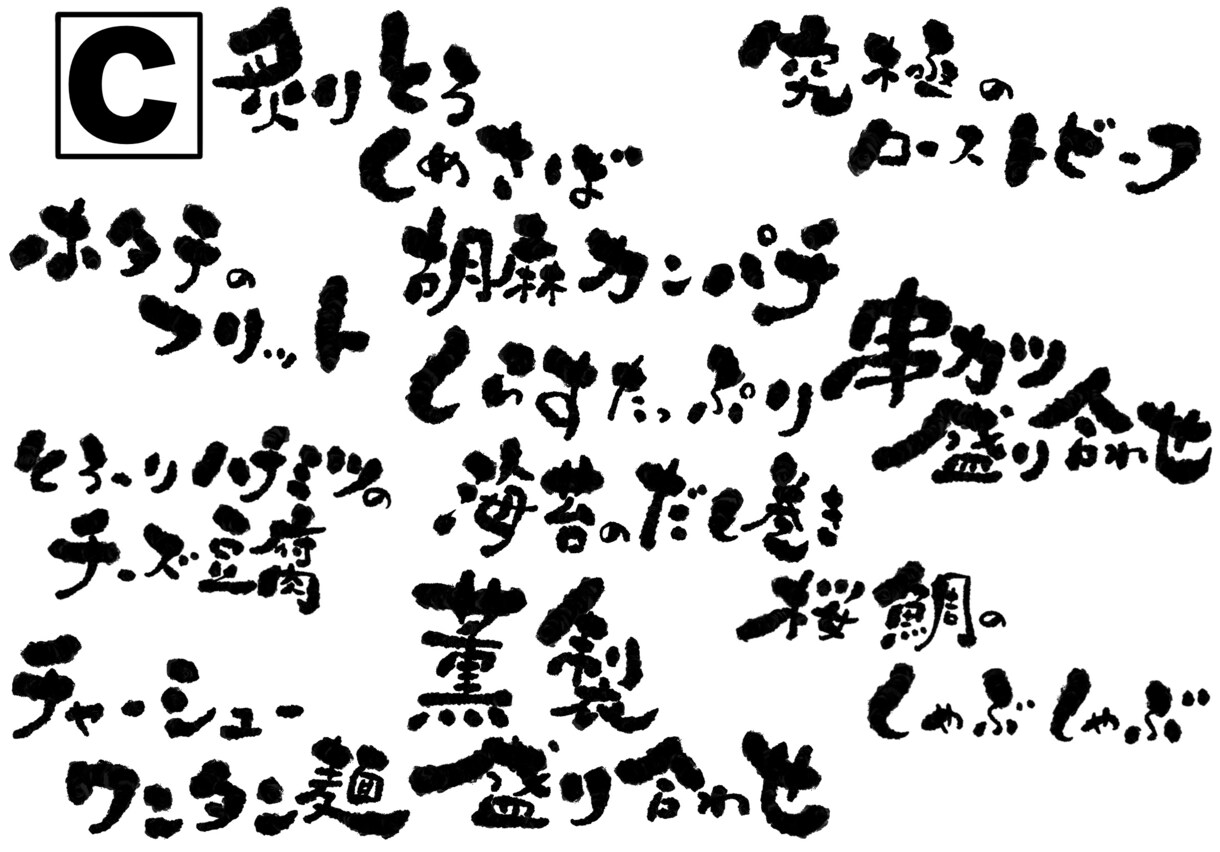 C
炙りとろ
しめさば
究極の
ローストビーフ
ホタテの
フリット
胡麻カンパチ
しらすたっぷり
串カツ
盛り合わせ
とろーりハチミツの
チーズ豆腐
海苔のだし巻き
桜鯛の
しゃぶしゃぶ
チャーシュー
ワンタン麺
薫製
盛り合わせ